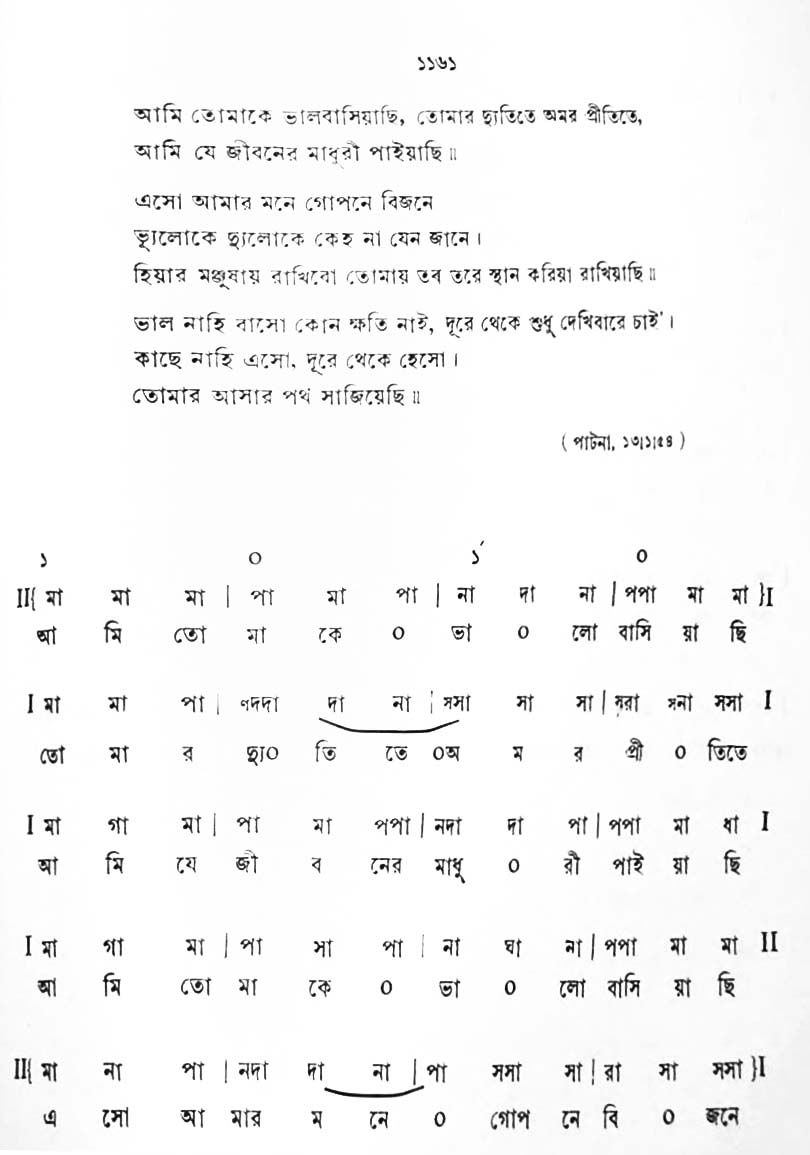 ১১৬১
আমি তোমাকে ভালবাসিয়াছি, তোমার দ্যুতিতে অমর প্রীতিতে,
আমি যে জীবনের মাধুরী পাইয়াছি॥
এসো আমার মনে গোপনে বিজনে
ভ্যুলোকে দ্যুলোকে কেহ না যেন জানে।
হিয়ার মঞ্জুষায় রাখিবো তোমায় তব তরে স্থান করিয়া রাখিয়াছি॥
ভাল নাহি বাসো কোন ক্ষতি নাই, দূরে থেকে শুধু দেখিবারে চাই'।
কাছে নাহি এসো, দূরে থেকে হেসো।
তোমার আসার পথ সাজিয়েছি॥
( পাটনা, ১৩|১|৫৪ )
১ ০ ১´ ০
II{ মা মা মা | পা মা পা | না দা না | পপা মা মা }I
আ মি তো মা কে ০ ভা ০ লো বাসি য়া ছি
I মা মা পা | ণদদা দা না | সসা সা সা | সরা সনা সসা I
তো মা র দ্যু০ তি তে ০অ ম র প্রী ০ তিতে
I মা গা মা | পা মা পপা | নদা দা পা | পপা মা ধা I
আ মি যে জী ব নের মাধু ০ রী পাই য়া ছি
I মা গা মা | পা সা পা | না ঘা না | পপা মা মা II
আ মি তো মা কে ০ ভা ০ লো বাসি য়া ছি
II{ মা না পা | নদা দা না | পা সসা সা | রা সা সসা }I
এ সো আ মার ম নে ০ গোপ নে বি ০ জনে